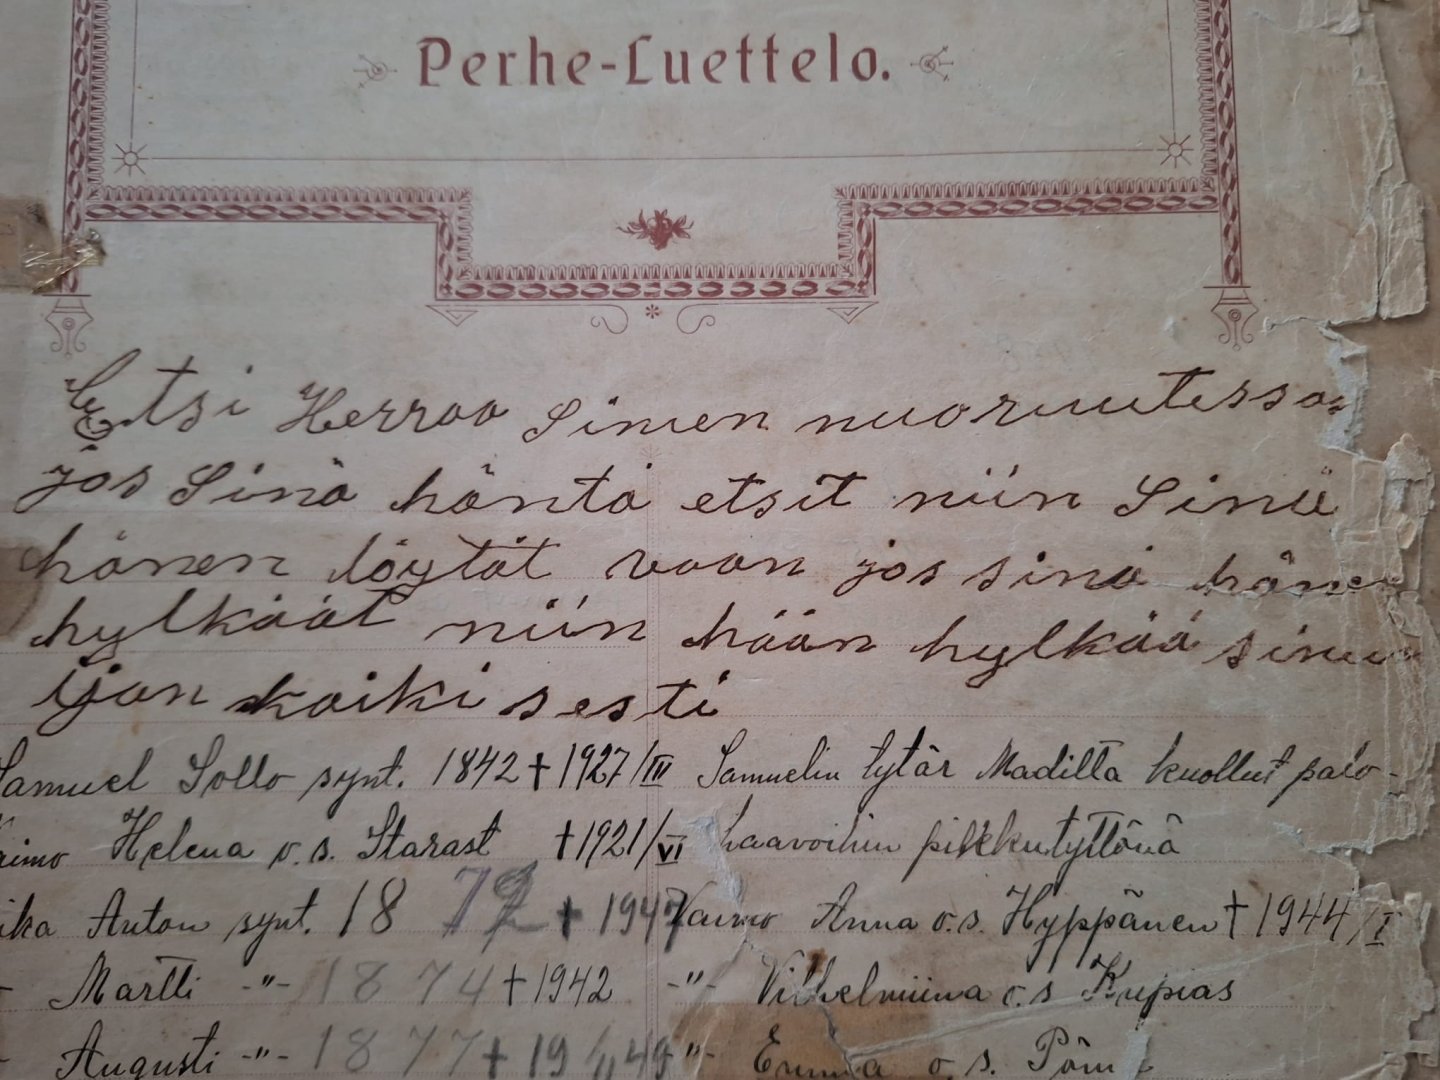 Perhe-Luettelo.
Etsi Herraa Sinun nuoruutessa,
jos Sinä häntä etsit niin Sinä
hänen löytät vaan jos sinä hänen
hylkäät niin hään hylkää sinun
ijan kaiki sesti
Samuel Sollo synt. 1842 † 1927/III Samuelin tytär Madilta kuollut palo-
Vaimo Helena o.s. Starast † 1921/VI haavoihin pikkutyttönä
Anton synt. 1872 † 1947 Vaimo Anna o.s. Hyppänen † 1944/I
- Martti -"- 1874 † 1942 -"- Vilhelmiina o.s Kupias
- Augusti -"- 1877 † 1949 "- Emma o.s.